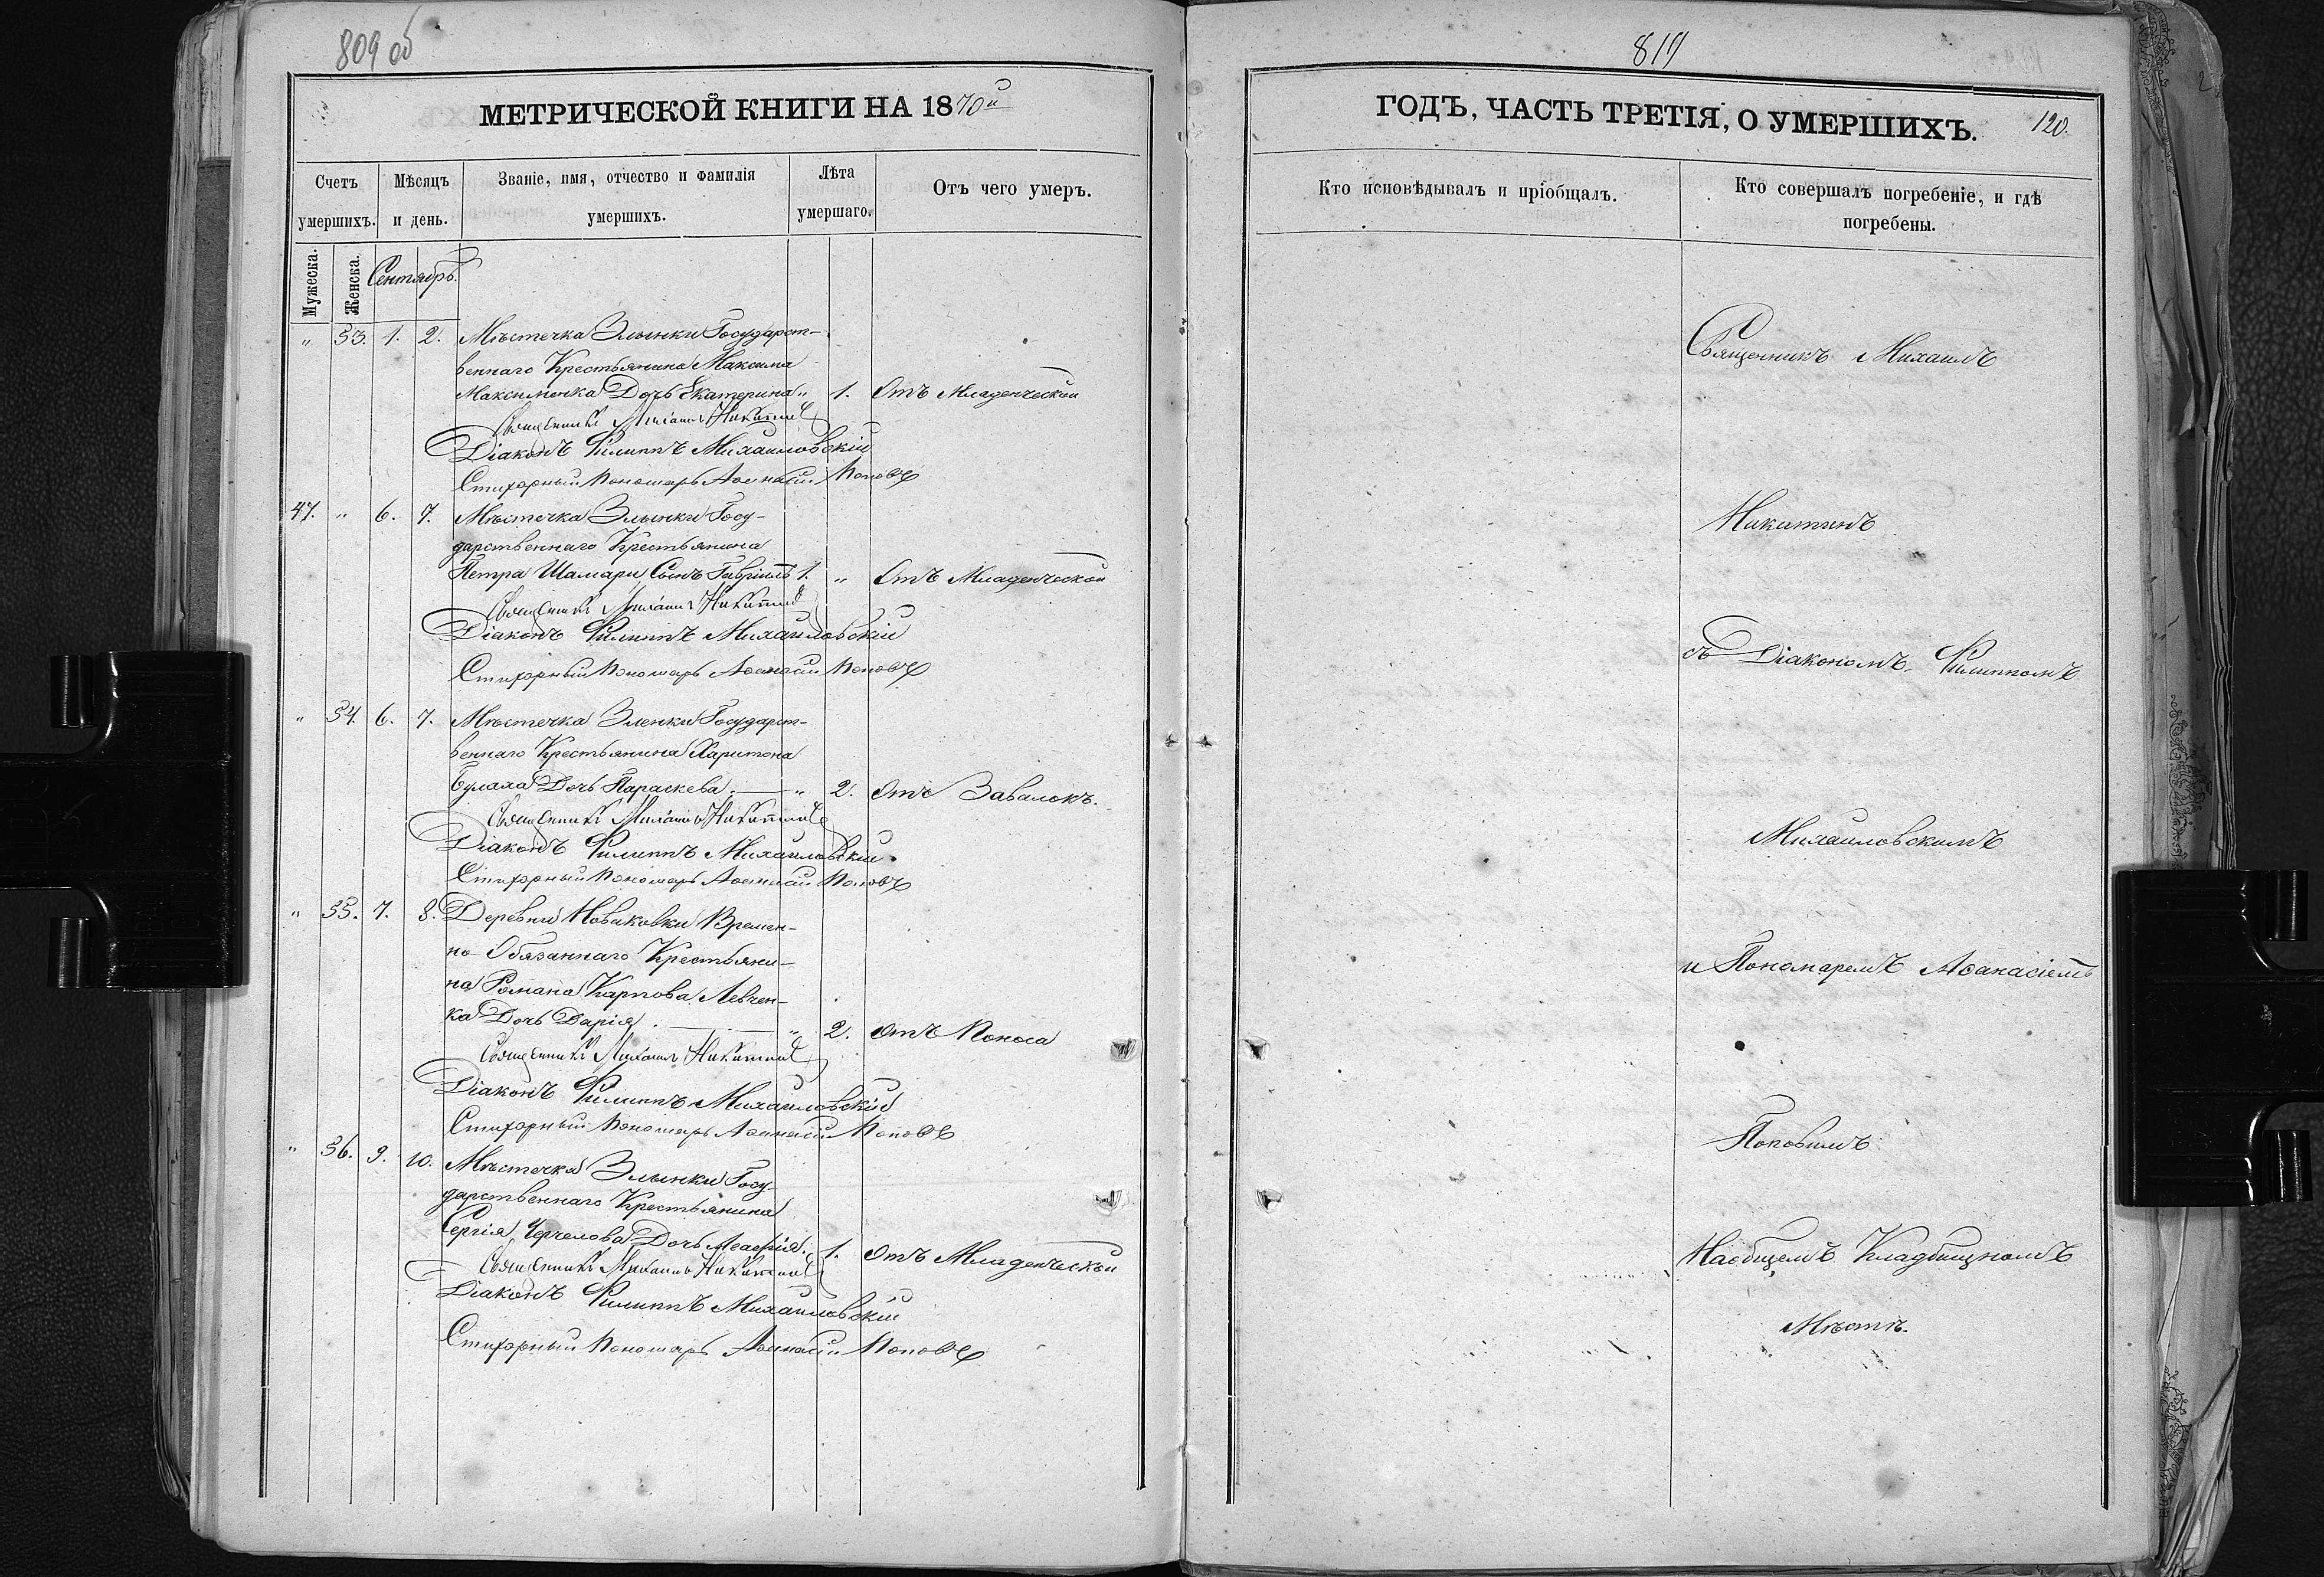 809 об
МЕТРИЧЕСКОЙ КНИГИ НА 1870й
Счетъ умершихъ.
Мѣсяцъ и день.
Званіе, имя, отчество и фамилія умершихъ.
Лѣта умершаго.
Отъ чего умеръ.
Мужеска.
Женска.
Сентябрь.
„ 53. 1. 2. Мѣстечка Злынки Государст-
веннаго Крестьянина Максима
Максименка Дочь Екатерина „ 1. Отъ Младенческой
Священникъ Михаилъ Никитинъ
Діаконъ Филиппъ Михайловскій
Стихорный Пономарь Аѳанасій Поповъ
47. „ 6. 7. Мѣстечка Злынки Госу-
дарственнаго Крестьянина
Петра Шамари Сынъ Гавріилъ 1. „ Отъ Младенческой
Священникъ Михаилъ Никитинъ
Діаконъ Филиппъ Михайловскій
Стихорный Пономарь Аѳанасій Поповъ
„ 54. 6. 7. Мѣстечка Зленки Государст-
веннаго Крестьянина Харитона
Булаха Дочь Параскева. — „ 2. Отъ Завалокъ.
Священникъ Михаилъ Никитинъ
Діаконъ Филиппъ Михайловскій.
Стихорный Пономарь Аѳанасій Поповъ
„ 55. 7. 8. Деревни Новаковки Времен-
но Обязаннаго Крестьяни-
на Романа Карпова Левчен-
ка Дочь Дарія. — „ 2. Отъ Поноса
Священникъ Михаилъ Никитинъ
Діаконъ Филиппъ Михайловскій
Стихорный Пономарь Аѳанасій Поповъ
„ 56. 9. 10. Мѣстечка Злынки Госу-
дарственнаго Крестьянина
Сергія Дочь 1. Отъ Младенческой
Священникъ Михаилъ Никитинъ
Діаконъ Филиппъ Михайловскій
Стихорный Пономарь Аѳанасій Поповъ
ГОДЪ, ЧАСТЬ ТРЕТІЯ, О УМЕРШИХЪ. 120.
Кто исповѣдывалъ и пріобщалъ.
Кто совершалъ погребеніе, и гдѣ
погребены.
Священникъ Михаилъ
Никитинъ
съ Діакономъ Филиппомъ
Михайловскимъ
и Пономаремъ Аѳанасіемъ
Поповымъ
На общемъ Кладбищномъ
Мѣстѣ.